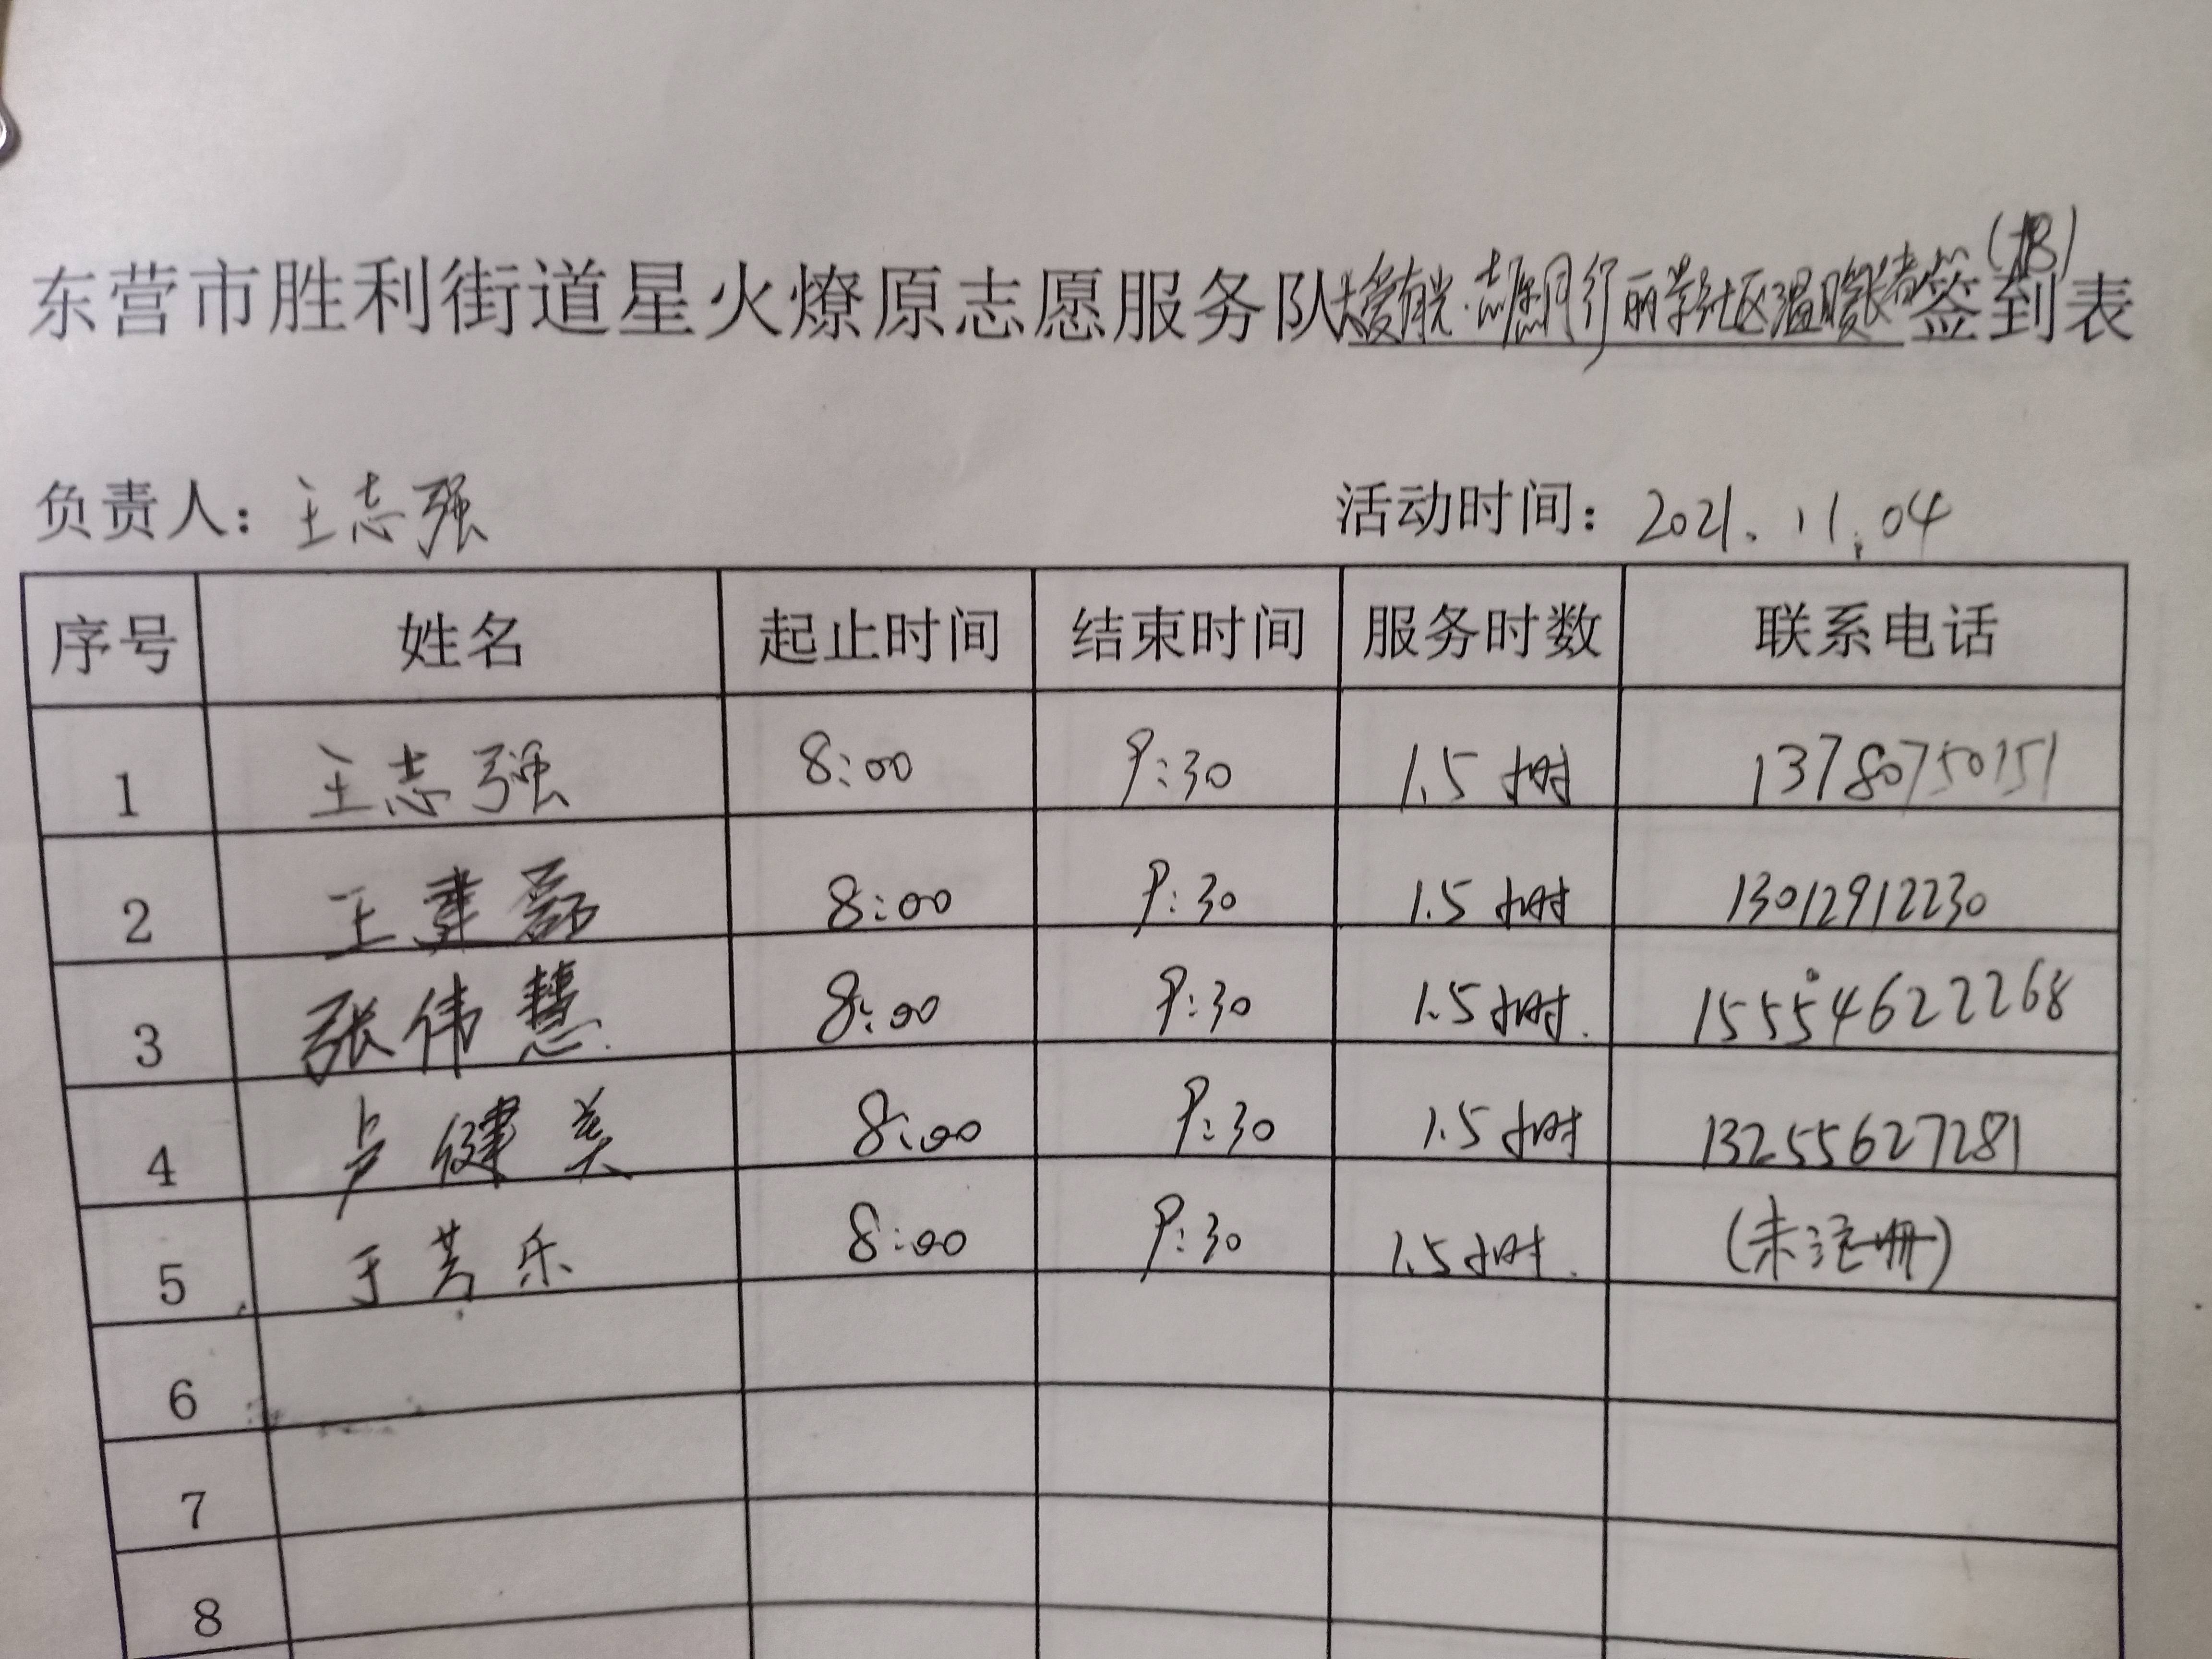 东营市胜利街道星火燎原志愿服务队大爱有光·志愿同行丽苹社区温暖长者签到表
负责人：王志强 活动时间：2021.11.04
序号 姓名 起止时间 结束时间 服务时数 联系电话
1 王志强 8:00 9:30 1.5小时 13780750151
2 王 8:00 9:30 1.5小时 13012912230
3 张伟慧 8:00 9:30 1.5小时 15554622268
4 卢健美 8:00 9:30 1.5小时 13255627281
5 于芳乐 8:00 9:30 1.5小时 (未注册)
6
7
8